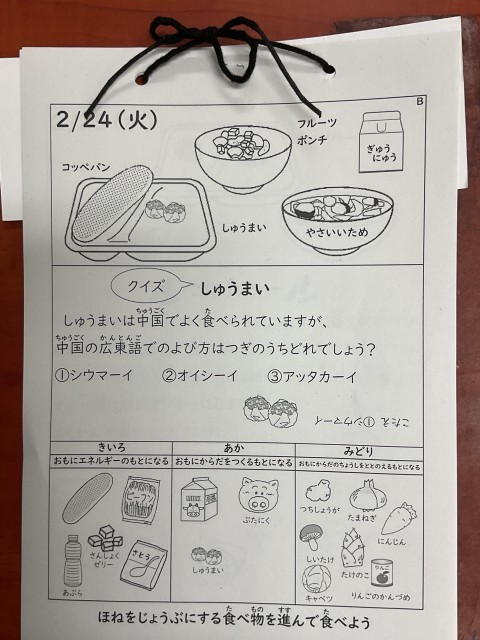 B
2/24(火)
フルーツ
ポンチ
ぎゅう
にゅう
コッペパン
しゅうまい
やさいいため
クイズ
しゅうまい
しゅうまいは中国でよく食べられていますが、
中国の広東語でのよび方はつぎのうちどれでしょう?
①シウマーイ ②オイシーイ ③アッタカーイ
こたえ ①シウマーイ
きいろ
おもにエネルギーのもとになる
ビーフン
さんしょく
ゼリー
あぶら
さとう
あか
おもにからだをつくるもとになる
ぶたにく
しゅうまい
みどり
おもにからだのちょうしをととのえるもとになる
つちしょうが
たまねぎ
にんじん
しいたけ
たけのこ
キャベツ
りんご
りんごのかんづめ
ほねをじょうぶにする食べ物を進んで食べよう